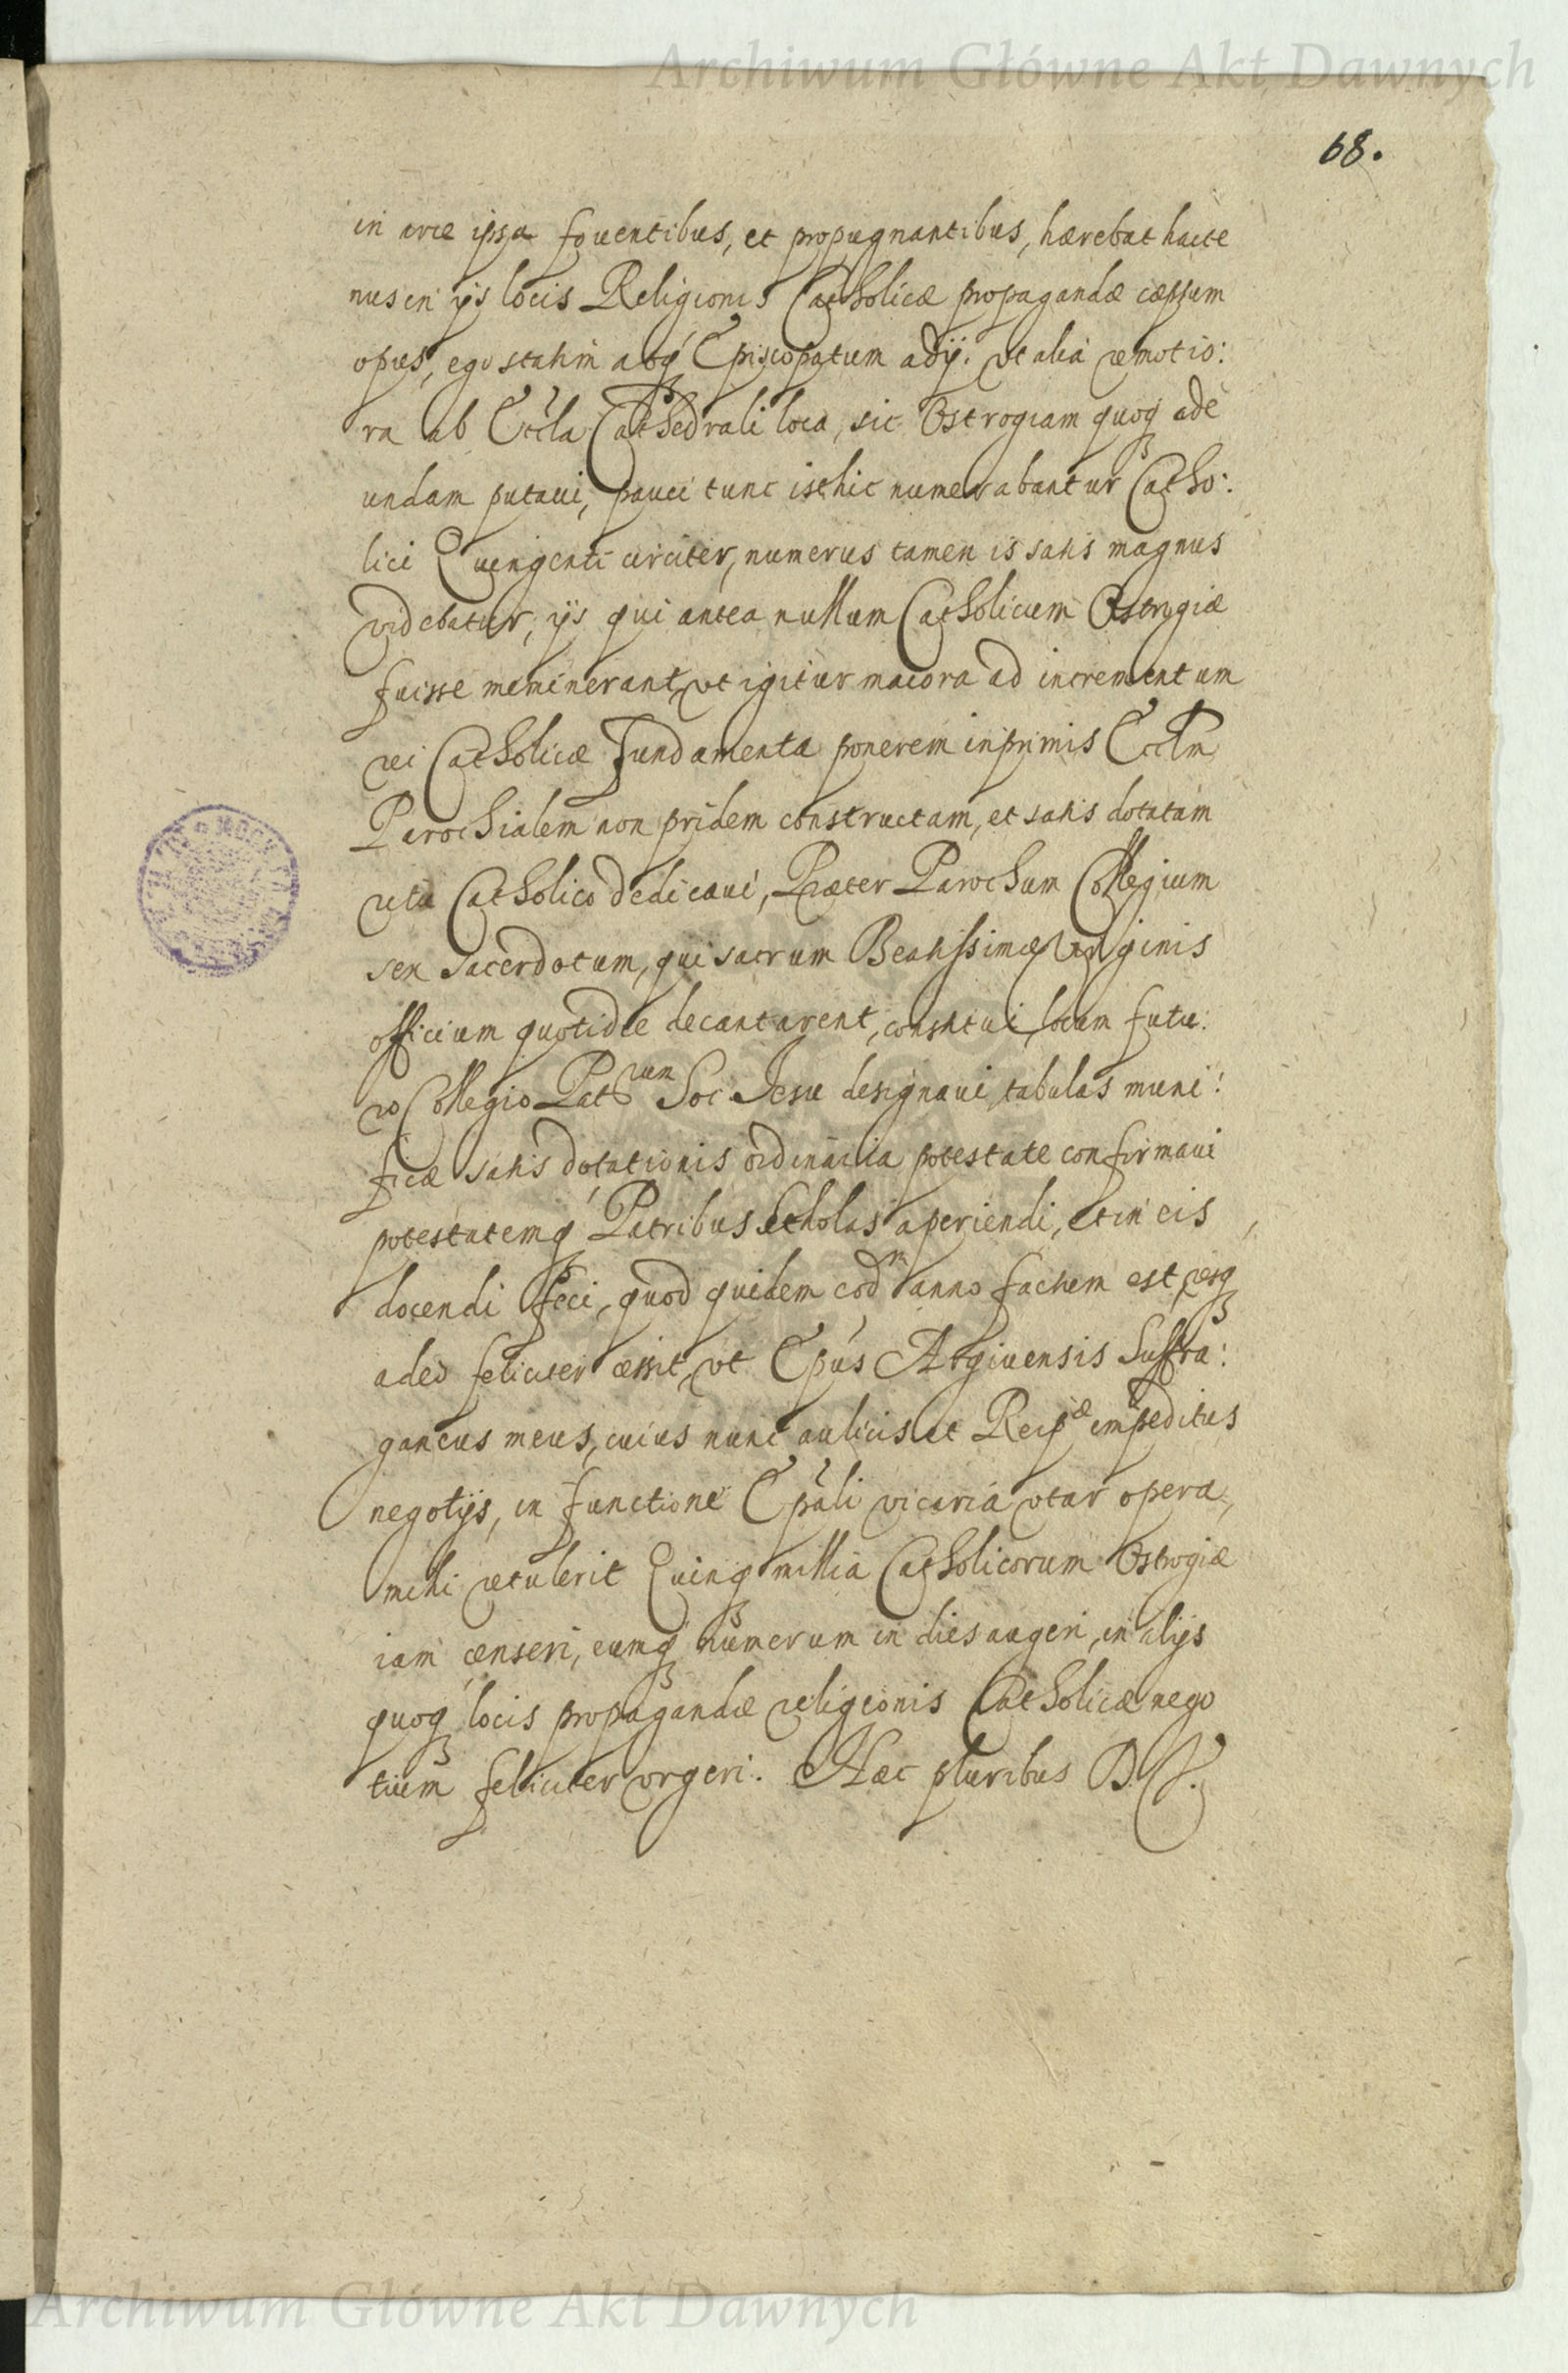 Archiwum Główne Akt Dawnych
68.
in arce ipsa fouentibus, et propugnantibus, hærebat hacte
nus in ijs locis Religionis Catholicæ propagandæ cæptum
opus, ego statim atq Episcopatum adij. vt alia remotio:
ra ab Eccla Cathedrali loca, sic Ostrogiam quoq ade
undam putaui, pauci tunc isthic numerabantur Catho:
lici Quingenti circiter, numerus tamen is satis magnus
videbatur, ijs qui antea nullum Catholicum Ostrogiæ
fuisse meminerant, vt igitur maiora ad incrementum
rei Catholicæ Fundamenta ponerem inprimis Ecclm
Parochialem non pridem constructam, et satis dotatam
ritu Catholico dedicaui, Præter Parochum Collegium
sex sacerdotum, qui sacrum Beatissimæ Virginis
officium quotidie decantarent, constitui, locum futu:
ro Collegio Patrum Soc Jesu designaui, tabulas muni:
ficæ satis dotationis ordinaria potestate confirmaui
potestatemq Patribus Scholas aperiendi, et in eis
docendi feci, quod quidem eodm anno factum est, resq
adeo feliciter cessit, vt Epus Argiuensis Suffra:
ganeus meus, cuius nunc aulicis et Reip æ impeditus
negotijs, in functione Epali vicaria vtar opera,
mihi retulerit Quinq millia Catholicorum Ostrogiæ
iam censeri, eumq numerum in dies augeri, in alijs
quoq locis propagandæ religionis Catholicæ nego
tium feliciter vrgeri. Hæc pluribus B. V.
Archiwum Główne Akt Dawnych